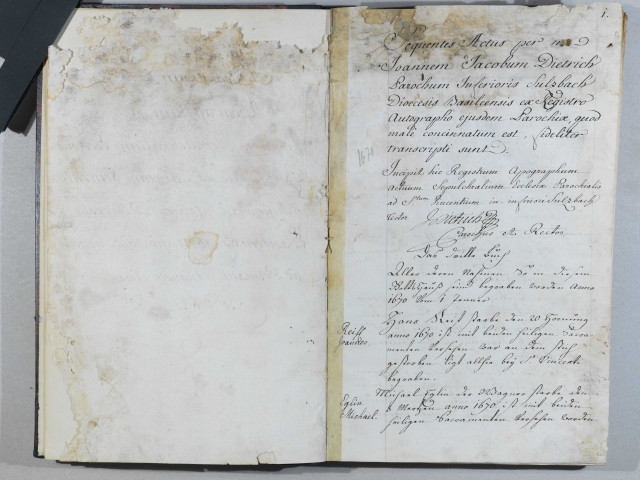 1.
Sequentes Actus per me
Joannem Jacobum Dietrich
Parochum Inferioris Sulzbach
Dioecesis Basileensis ex Registro
Autographo ejusdem Parochiae, quod
male concinnatum est, fideliter
transcripti sunt
1670
Incipit hic Registrum Apographum
actuum Sepulchralium Ecclesiae Parochialis
ad Stum Vincentium in inferiori Sulzbach
testor Dietrich
Parochus et Rector
Das dritte Buch
Aller deren Nahmen So in diesem
Gottshauß sind begraben worden Anno
1670 Vom 1 Jenner
Reiff
Joannes
Hans Reif starbe den 20 Hornung
anno 1670 ist mit beiden heiligen Sacra-
menten Versehen war an dem
gestorben ligt allhie bey St Vincent
begraben.
Eglin
Michael.
Michael Eglin der Wagner starbe den
Mertzen anno 1670 ist mit beiden
heiligen Sacramenten Versehen worden